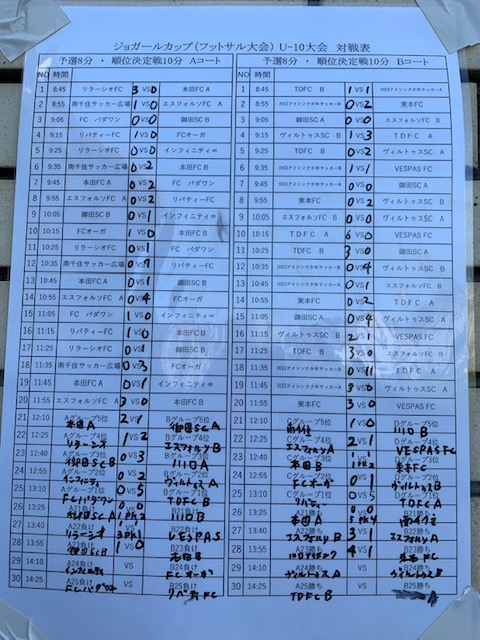 ジョガールカップ(フットサル大会) U-10大会 対戦表
予選8分 ・ 順位決定戦10分 Aコート 予選8分 ・ 順位決定戦10分 Bコート
NO 時間 NO 時間
1 8:45 リラーシオFC 3 VS 0 本田FC A 1 8:45 TDFC B 1 VS 1
2 8:55 南千住サッカー広場 1 VS 0 エスフォルソFC A 2 8:55 0 VS 2 東本FC
3 9:05 FC バダウン 0 VS 0 御田SC B 3 9:05 エスフォルソFC B 0 VS 0
4 9:15 リバティーFC 1 VS 0 FCオーガ 4 9:15 ヴィルトゥスSC B 1 VS 3 TDFC A
5 9:25 リラーシオFC 0 VS 0 インフィニティ∞ 5 9:25 TDFC B 0 VS 2 ヴィルトゥスSC A
6 9:35 南千住サッカー広場 0 VS 2 本田FC B 6 9:35 1 VS 1 VESPAS FC
7 9:45 本田FC A 0 VS 2 FC バダウン 7 9:45 0 VS 0 御田SC A
8 9:55 エスフォルソFC A 0 VS 2 リバティーFC 8 9:55 東本FC 0 VS 2 ヴィルトゥスSC B
9 10:05 御田SC B 0 VS 1 インフィニティ∞ 9 10:05 エスフォルソFC B 0 VS 0 ヴィルトゥスSC A
10 10:15 FCオーガ 1 VS 0 本田FC B 10 10:15 TDFC A 6 VS 0 VESPAS FC
11 10:25 リラーシオFC 0 VS 1 FC バダウン 11 10:25 TDFC B 3 VS 0 御田SC A
12 10:35 南千住サッカー広場 0 VS 7 リバティーFC 12 10:35 0 VS 4 ヴィルトゥスSC B
13 10:45 本田FC A 0 VS 1 御田SC B 13 10:45 0 VS 1 エスフォルソFC B
14 10:55 エスフォルソFC A 0 VS 4 FCオーガ 14 10:55 東本FC 0 VS 2 TDFC A
15 11:05 FC バダウン 1 VS 0 インフィニティ∞ 15 11:05 御田SC A 0 VS 4 ヴィルトゥスSC A
16 11:15 リバティーFC 1 VS 0 本田FC B 16 11:15 ヴィルトゥスSC B 2 VS 1 VESPAS FC
17 11:25 リラーシオFC 0 VS 1 御田SC B 17 11:25 TDFC B 3 VS 0 エスフォルソFC B
18 11:35 南千住サッカー広場 0 VS 3 FCオーガ 18 11:35 0 VS 11 TDFC A
19 11:45 本田FC A 0 VS 1 インフィニティ∞ 19 11:45 VS ヴィルトゥスSC A
20 11:55 エスフォルソFC A 3 VS 0 本田FC B 20 11:55 東本FC 3 VS 0 VESPAS FC
21 12:10 Aグループ5位 本田A 2 VS 1 Bグループ5位 御田SC A 21 12:10 Cグループ5位 VS Dグループ5位 川口B
22 12:25 Aグループ4位 リラーシオ 1 VS 2 Bグループ4位 エスフォルソB 22 12:25 Cグループ4位 エスフォルソA 2 VS 1 Dグループ4位 VESPAS FC
23 12:40 Aグループ3位 御田SC B 0 VS 3 Bグループ3位 川口A 23 12:40 Cグループ3位 本田B 1 Dグループ3位 東本FC
24 12:55 Aグループ2位 インフィニティ 0 VS 2 Bグループ2位 ヴィルトゥスA 24 12:55 Cグループ2位 FCオーガ 0 VS Dグループ2位 ヴィルトゥスB
25 13:10 Aグループ1位 FCバダウン 0 VS 5 Bグループ1位 TDFC B 25 13:10 Cグループ1位 リバティー 0 VS 5 Dグループ1位 TDFC A
26 13:25 A21負け 御田SC A B21負け 川口B 26 13:25 A21勝ち 本田A B21勝ち
27 13:40 A22負け リラーシオ B22負け VESPAS 27 13:40 A22勝ち エスフォルソB 3 VS 2 B22勝ち エスフォルソA
28 13:55 A23負け 御田SC B 1 VS 0 B23負け 本田B 28 13:55 A23勝ち 4 VS 1 B23勝ち 東本FC
29 14:10 A24負け インフィニティ VS B24負け FCオーガ 29 14:10 A24勝ち ヴィルトゥスA VS B24勝ち ヴィルトゥスB
30 14:25 A25負け FCバダウン VS B25負け リバティFC 30 14:25 A25勝ち TDFC B VS B25勝ち A